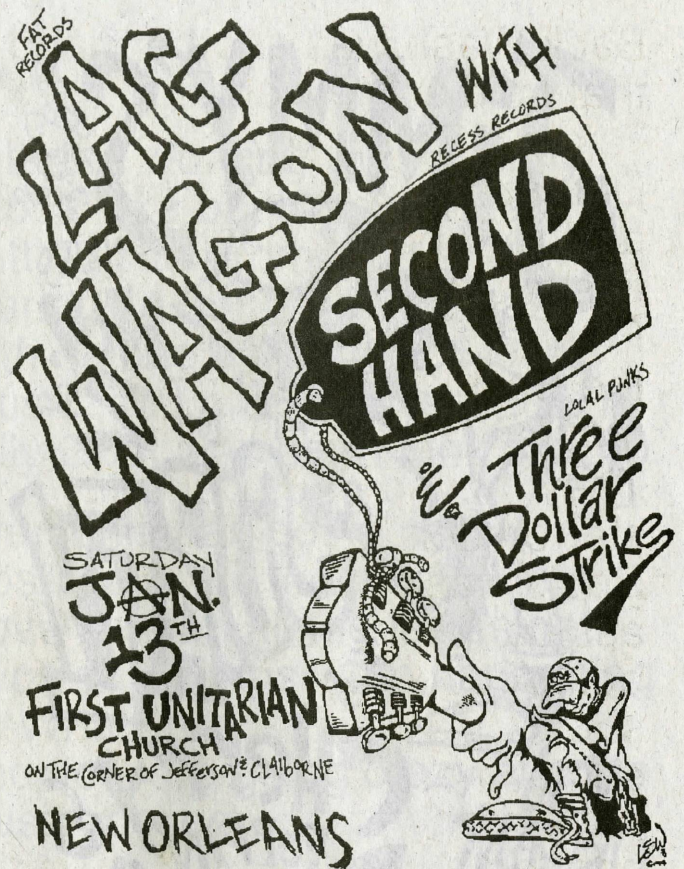 FAT
RECORDS
LAG
WAGON
WITH
RECESS RECORDS
SECOND
HAND
LOCAL PUNKS
& Three
Dollar
Strike
SATURDAY
JAN.
13TH
FIRST UNITARIAN
CHURCH
ON THE CORNER OF Jefferson & CLAIBORNE
NEW ORLEANS
LEW